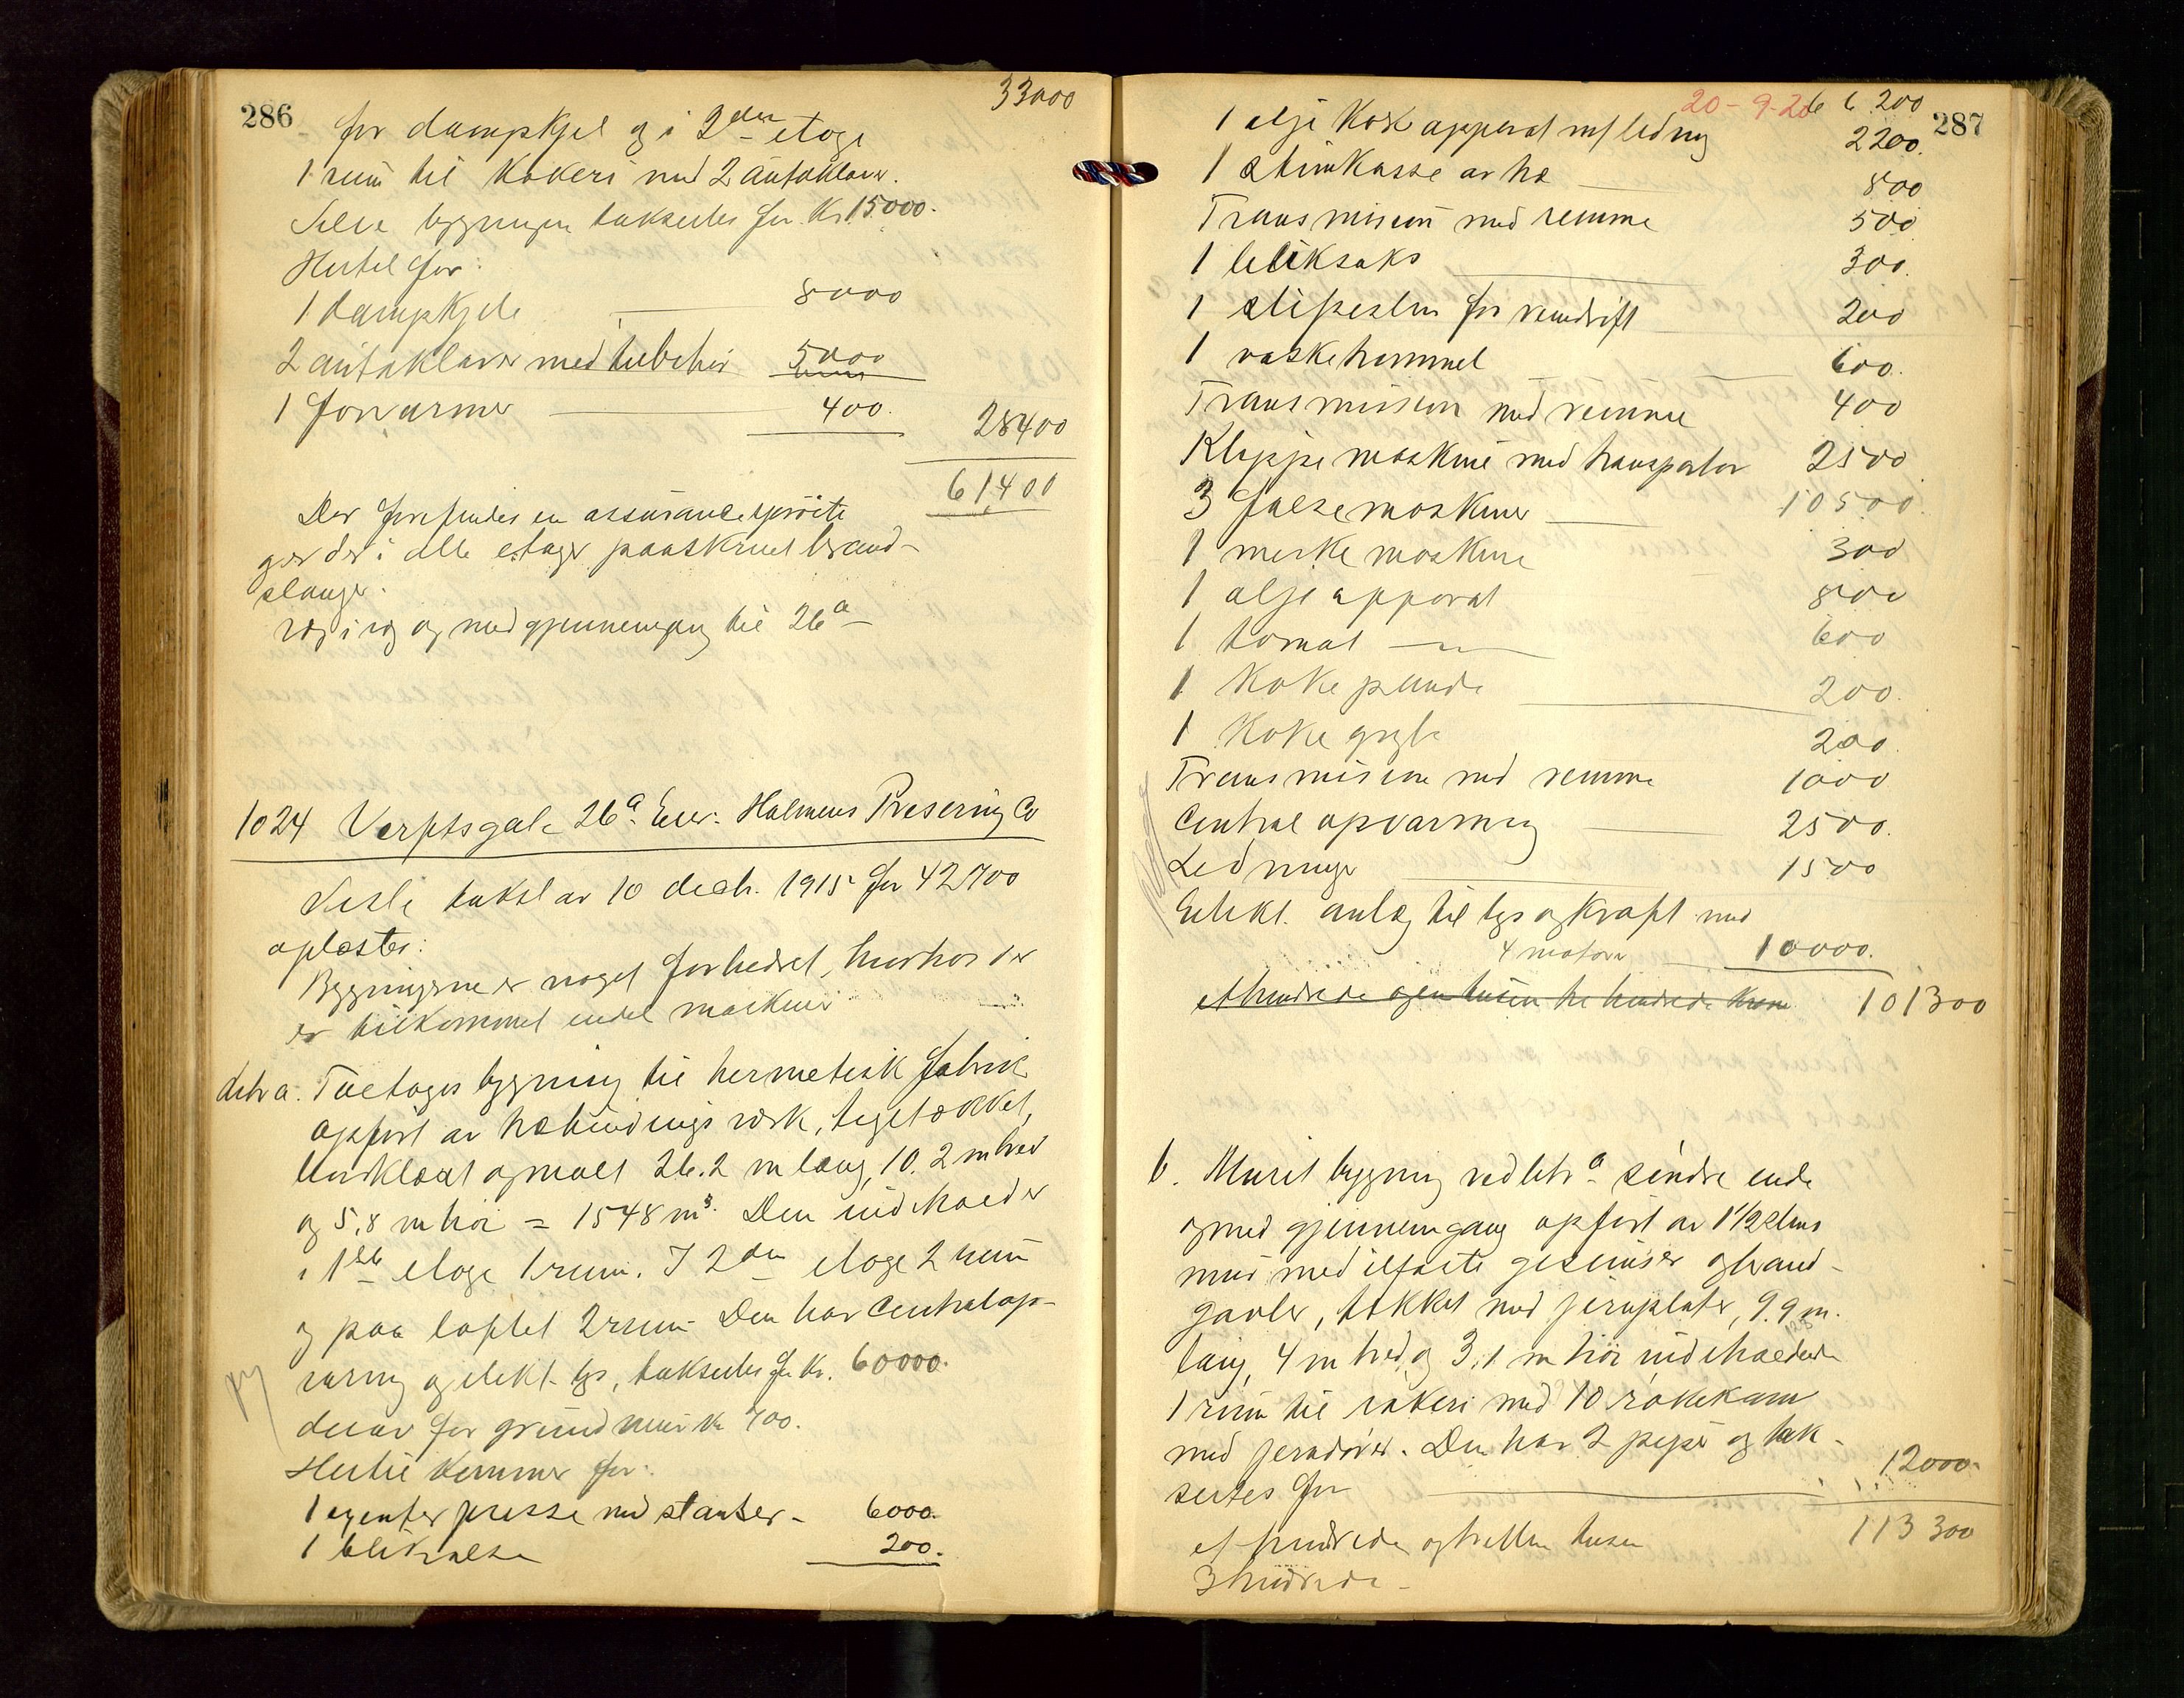 286
33000
for dampkjel og i 2den etage
1 rum til kokeri med 2 autoklaver.
Selve bygningen takseres for Kr 15000.
Hertil for:
1 dampkjele 8000
2 autoklaver med tilbehør 5000
1 forvarmer 400. 28400
61,400
Der forefindes en assurancesprøite
og er der i alle etager paaskruet brand-
slanger.
væg i væg og med gjennemgang til 26a
1024 Verftsgate 26a. Eier: Holmens Preserving Co
Sidste takst av 10 decbr. 1915 for 42700
oplæstes:
Bygningerne er noget forbedret, hvorhos der
er tilkommet endel maskiner
Litr a. Toetages bygning til hermetikfabrik
opført av træbindingsverk, teglstækket,
bordklædt og malt 26.2 m lang, 10.2 m bred
og 5,8 m høi = 1548 m3. Den indeholder
i 1ste etage 1 rum. I 2den etage 2 rum
og paa loftet 2 rum. Den har Centralop-
varmg og elekt. lys, takseres for Kr. 60000.
derav for grundmur kr 700.
Hertil kommer for:
1 exenterpresse med stanser - 6000.
1 blikvalse 200.
287
20-9-26
66.200
1 olje kokeapparat m/ ledning 2200.
1 stimkasse av træ 800
Transmission med remme 500
1 bliksaks 300.
1 slipesten for remdrift 200
1 vasketrommel 600.
Transmission med remme 400
Klippemaskine med transportør 2500
3 falsemaskiner 10500.
1 merkemaskine 300
1 oljeapparat 800
1 tomat 600
1 kokepande 200.
1 kokegryte 200.
Transmission med remme 1000
Central opvarmning 2500.
Ledninger 1500
Elekt. anlæg til lys og kraft med
4 motorer 10000.
et hundrede og en tusen tre hundrede kroner 101300
b. Muret bygning ved litr a søndre ende
og med gjennemgang opført av 1 1/2 stens
mur med ildfaste gesimser og brand-
gavler, tækket med jernplater, 9.9 m.
lang, 4 m bred og 3,1 m høi indeholdende
1 rum til røkeri med 10 røkekam
med jerndører. Den har 2 piper og tak-
seres for 12000.
et hundrede og tretten tusen 113 300
3 hundrede -